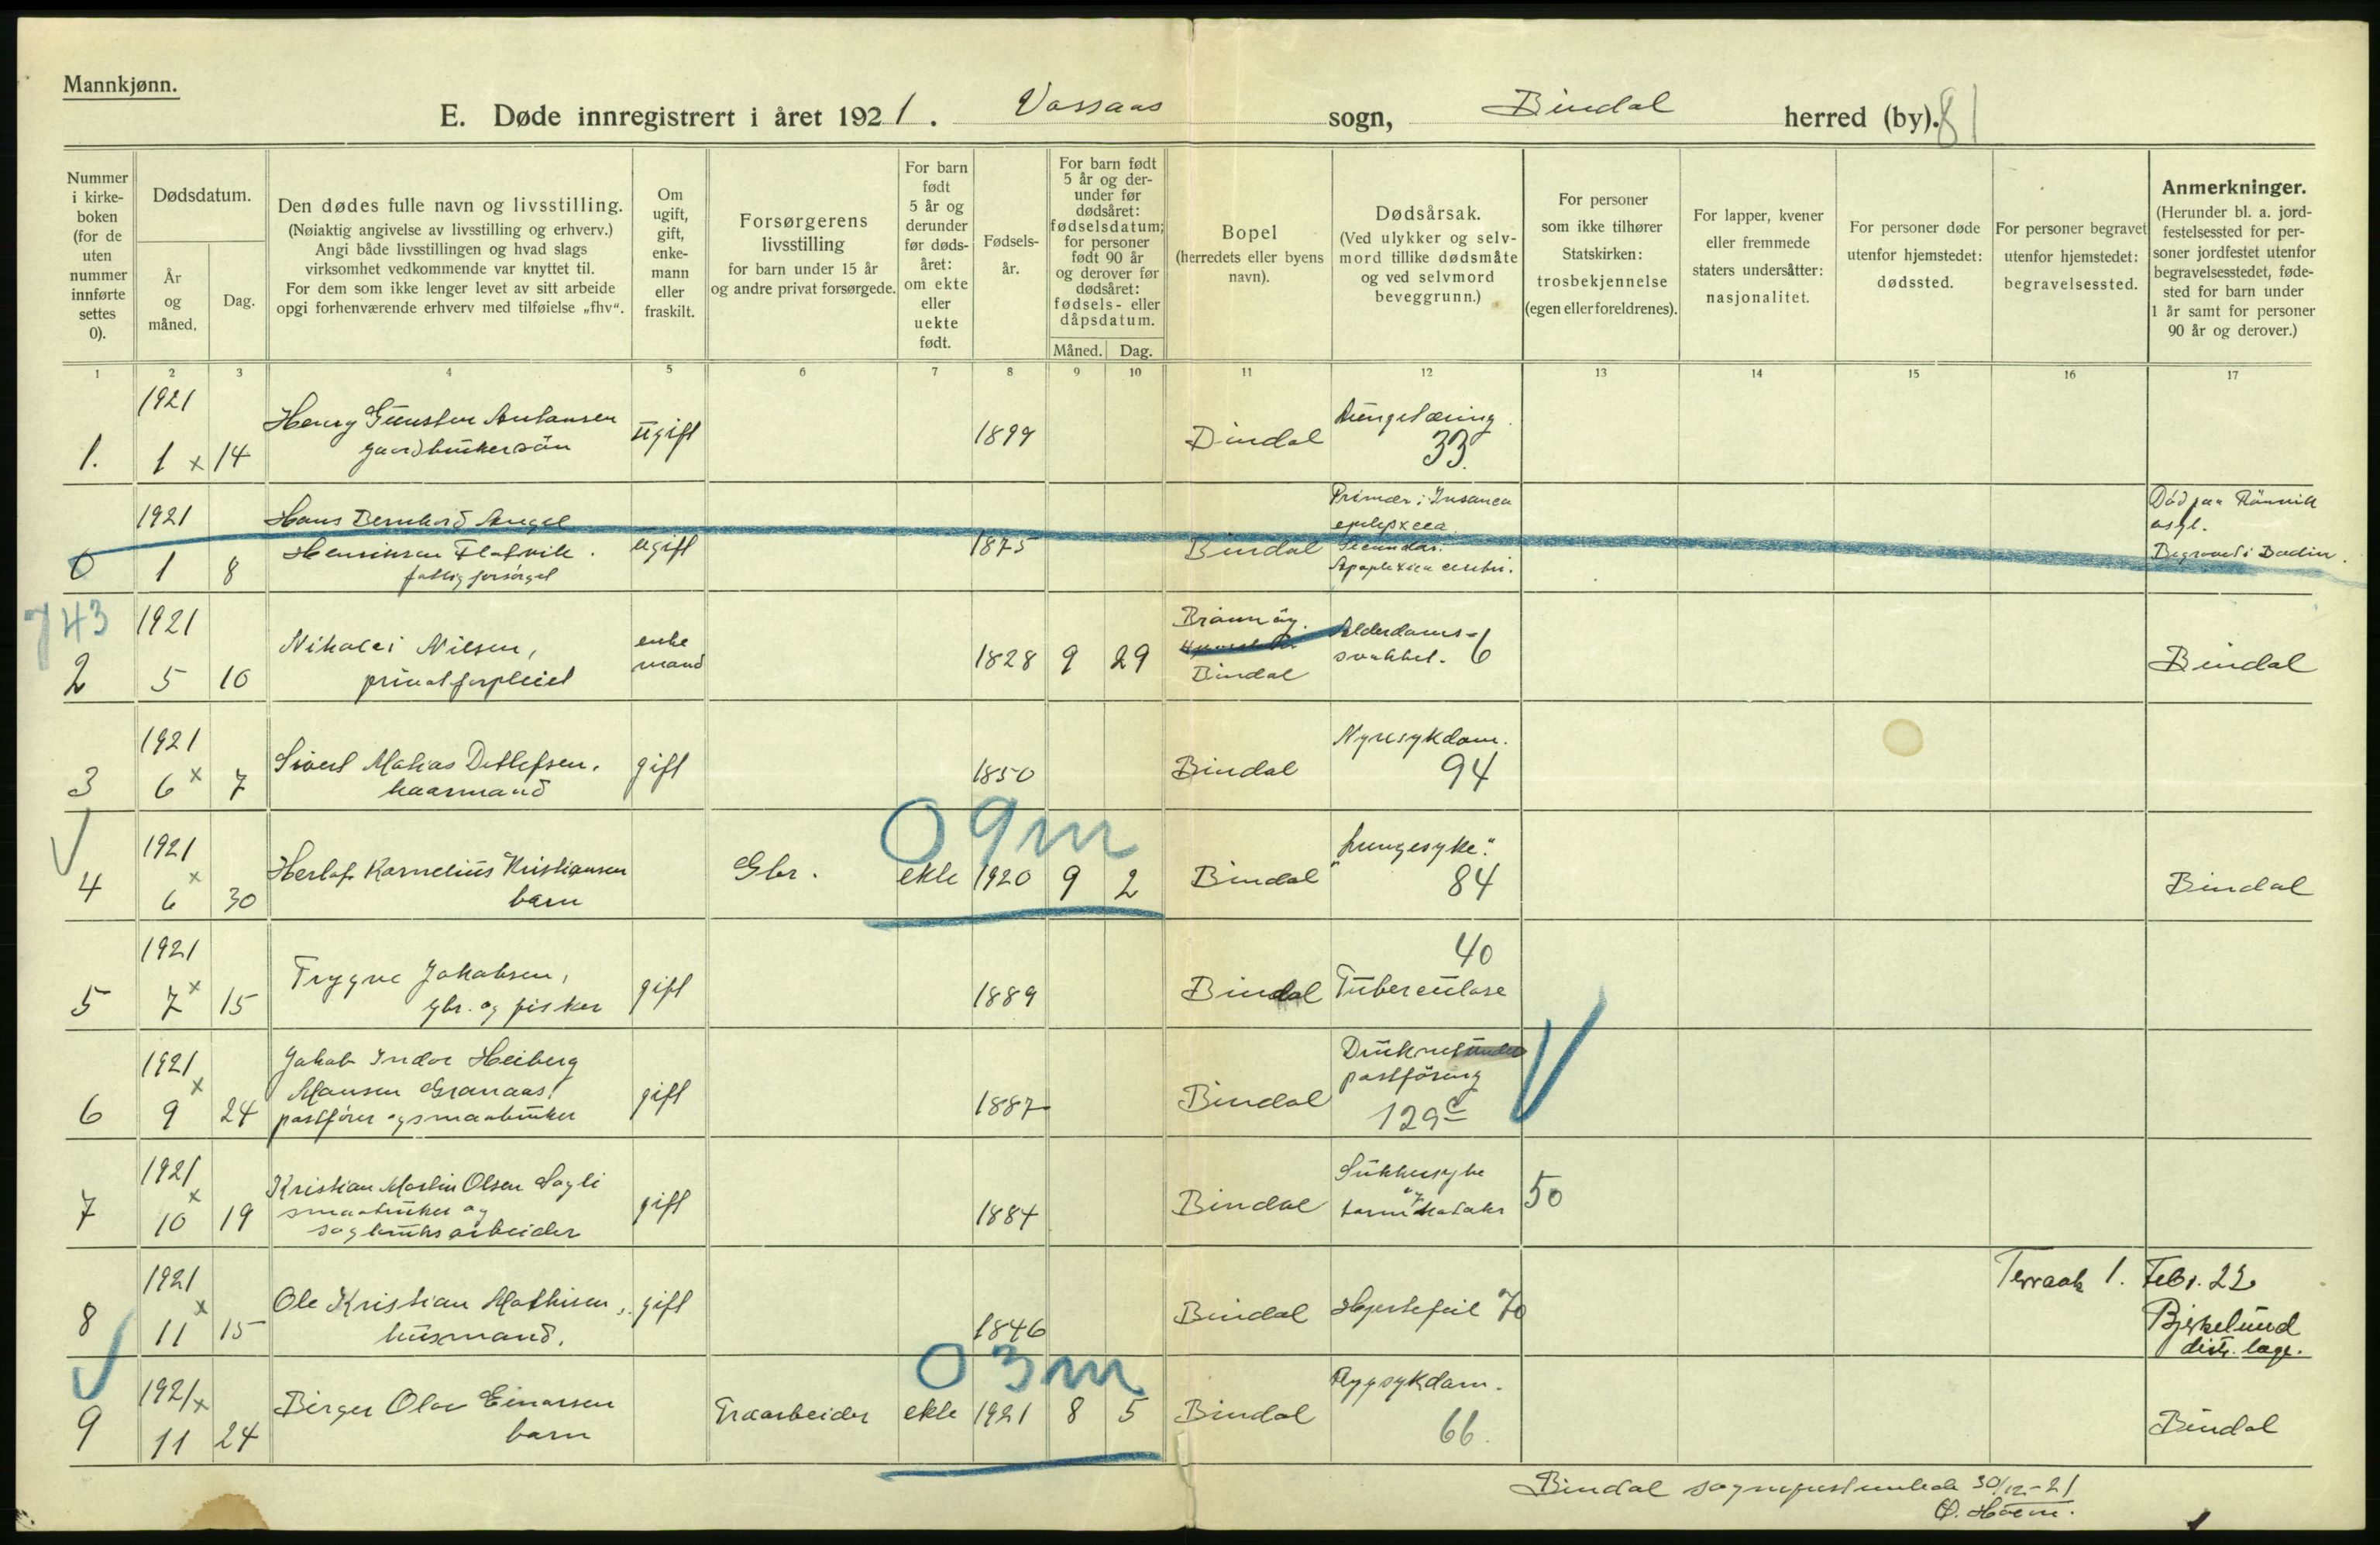 Mannkjønn.
E. Døde innregistrert i året 1921. Vassaas sogn, Bindal herred (by). 81
Nummer i kirke-boken (for de uten nummer innførte settes 0).
Dødsdatum.
År og måned.
Dag.
Den dødes fulle navn og livsstilling.
(Nøiaktig angivelse av livsstilling og erhverv.)
Angi både livsstillingen og hvad slags
virksomhet vedkommende var knyttet til.
For dem som ikke lenger levet av sitt arbeide
opgi forhenværende erhverv med tilføielse „fhv“.
Om ugift, gift, enke-mann eller fraskilt.
Forsørgerens
livsstilling
for barn under 15 år
og andre privat forsørgede.
For barn født 5 år og derunder før døds-året: om ekte eller uekte født.
Fødsels-år.
For barn født 5 år og der-under før dødsåret: fødselsdatum; for personer født 90 år og derover før dødsåret: fødsels- eller dåpsdatum.
Måned.
Dag.
Bopel
(herredets eller byens
navn).
Dødsårsak.
(Ved ulykker og selv-
mord tillike dødsmåte
og ved selvmord
beveggrunn.)
For personer
som ikke tilhører
Statskirken:
trosbekjennelse
(egen eller foreldrenes).
For lapper, kvener
eller fremmede
staters undersåtter:
nasjonalitet.
For personer døde
utenfor hjemstedet:
dødssted.
For personer begravet
utenfor hjemstedet:
begravelsessted.
Anmerkninger.
(Herunder bl. a. jord-
festelsessted for per-
soner jordfestet utenfor
begravelsesstedet, føde-
sted for barn under
1 år samt for personer
90 år og derover.)
1 2 3 4 5 6 7 8 9 10 11 12 13 14 15 16 17
1. 1921 1 x 14 Henry Gunsten Antonsen
gaardbrukersön
ugift 1899 Bindal Lungetæring.
33.
0 1921 1 8 Hans Bernhard Angel
Henriksen Flatvik.
fattigforsörget
ugift 1875 Bindal
Primær: Insanea
epileptica.
Secundær:
Apoplexia cerebri.
Död paa Rönvik
asyl.
Begravet i Bodin.
743
2 1921 5 10 Nikolai Nilsen,
privatforpleiet
enke
mand
1828 9 29
Brönnöy.
Bindal
Alderdoms-
svakhet. 6
Bindal
3 1921 6 x 7 Sivert Matias Detlefsen,
kaarmand
gift 1850 Bindal Nyresykdom.
94
09m
4 1921 6 x 30 Herlof Kornelius Kristiansen
barn
Gbr. ekte 1920 9 2 Bindal "Lungesyke".
84
Bindal
5 1921 7 x 15 Trygve Jakobsen,
gbr. og fisker
gift 1889 Bindal 40
Tuberculose
6 1921 9 x 24 Jakob Indor Heiberg
Hansen Granaas,
postfører og smaabruker
gift 1887 Bindal Druknet under
postföring
129c
7 1921 10 x 19 Kristian Martin Olsen Sagli
smaabruker og
sagbruksarbeider
gift 1884 Bindal Sukkersyke
og
tarmkatarr 50
8 1921 11 x 15 Ole Kristian Mathisen,
husmand.
gift 1846 Bindal Hjertefeil 70
Terraak 1. Febr. 22
Bjerkelund
distr. læge.
03m
9 1921 x 11 24 Birger Olav Einarsen
barn
Træarbeider ekte 1921 8 5 Bindal Rygsykdom.
66.
Bindal
Bindal sogneprestembede 30/12-21